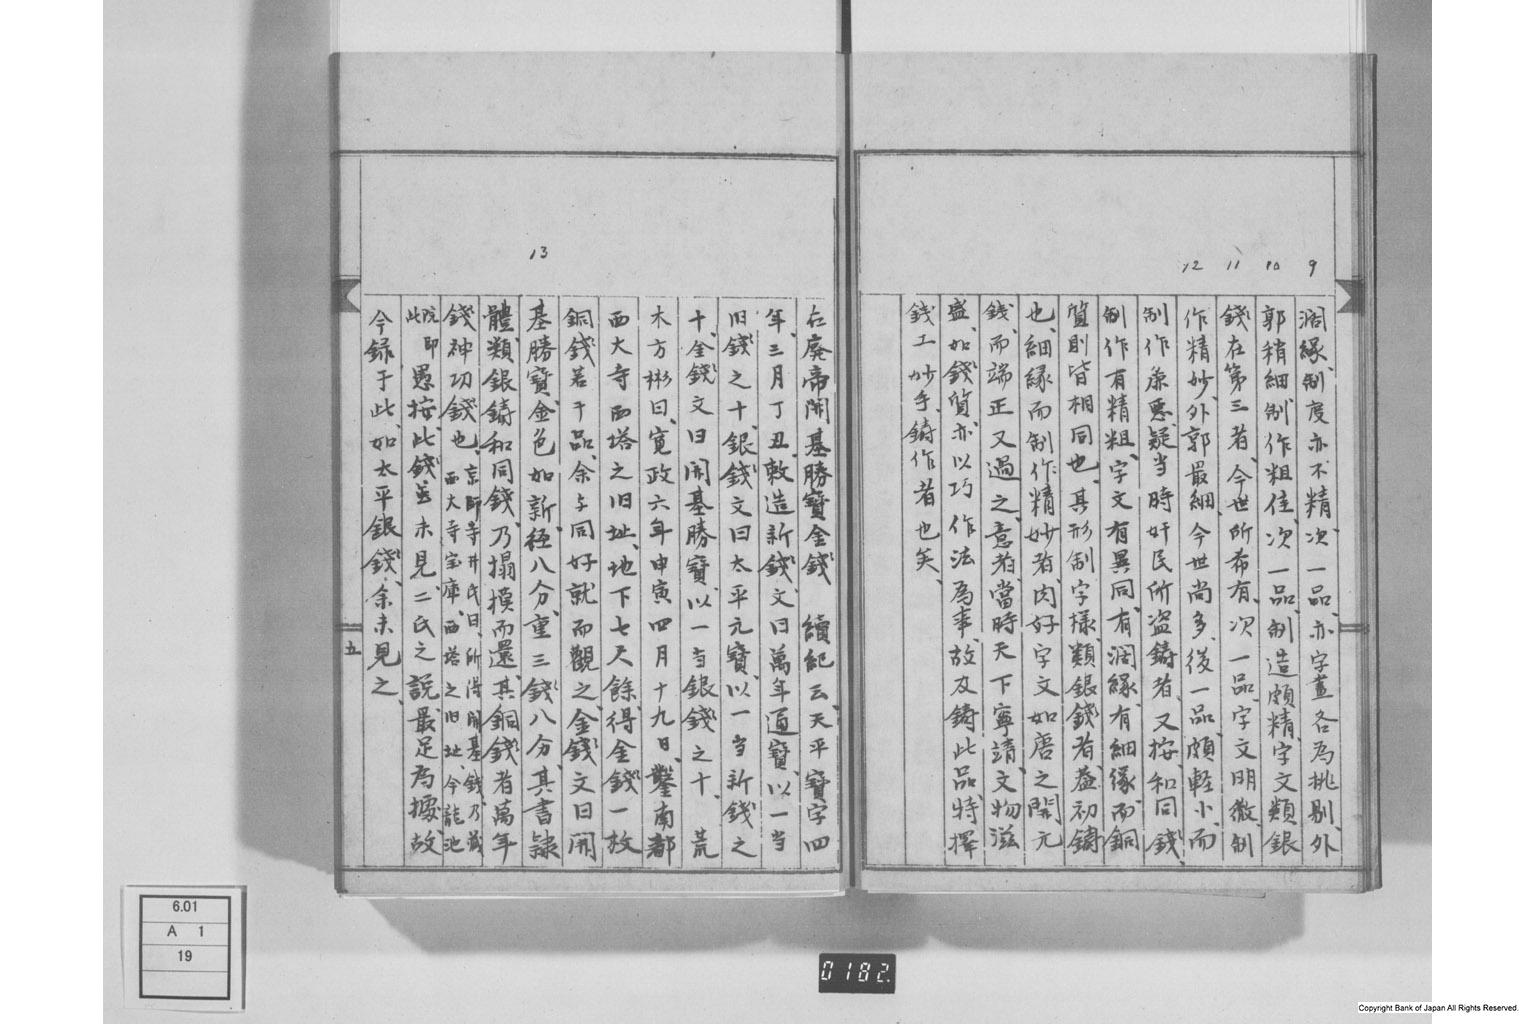 9
10
11
12
濶縁、制度亦不精、次一品、亦字畫各為挑剔、外
郭稍細、制作粗佳、次一品、制造頗精、字文類銀
錢在第三者、今世所希有、次一品字文明徹、制
作精妙、外郭最細、今世尚多、後一品、頗軽小、而
制作麁惡、疑当時奸民所盗鑄者、又按、和同錢、
制作有精粗、字文有異同、有濶縁、有細縁、而銅
質則皆相同也、其形制字様、類銀錢者、蓋初鑄
也、細縁而制作精妙者、肉好字文如唐之開元
錢、而端正又過之、意者、當時天下寧靖、文物滋
盛、如錢質亦以巧作法為事、故及鑄此品、特擇
錢工妙手、鑄作者也矣、
13
右廢帝開基勝寶金錢 續紀云、天平寶字四
年、三月丁丑、敕造新錢、文曰萬年通寶、以一当
旧錢之十、銀錢文曰太平元寶、以一当新錢之
十、金錢文曰開基勝寶、以一当銀錢之十、 荒
木方彬曰、寛政六年申寅四月十九日、鑿南都
西大寺西塔之旧址、地下七尺餘、得金錢一枚
銅錢若干品、余与同好就而觀之、金錢文曰開
基勝寶、金色如新、徑八分、重三錢八分、其書隷
體、類銀鑄和同錢、乃搨模而還、其銅錢者萬年
錢神功錢也、京師寺井氏曰、所得開基錢、乃蔵
西大寺宝庫、西塔之旧址、今龍池
院即
此 愚按、此錢並未見、二氏之説最足為據、故
今録于此、如太平銀錢、余未見之、
五
6.01
A 1
19
0182
Copyright Bank of Japan All Rights Reserved.